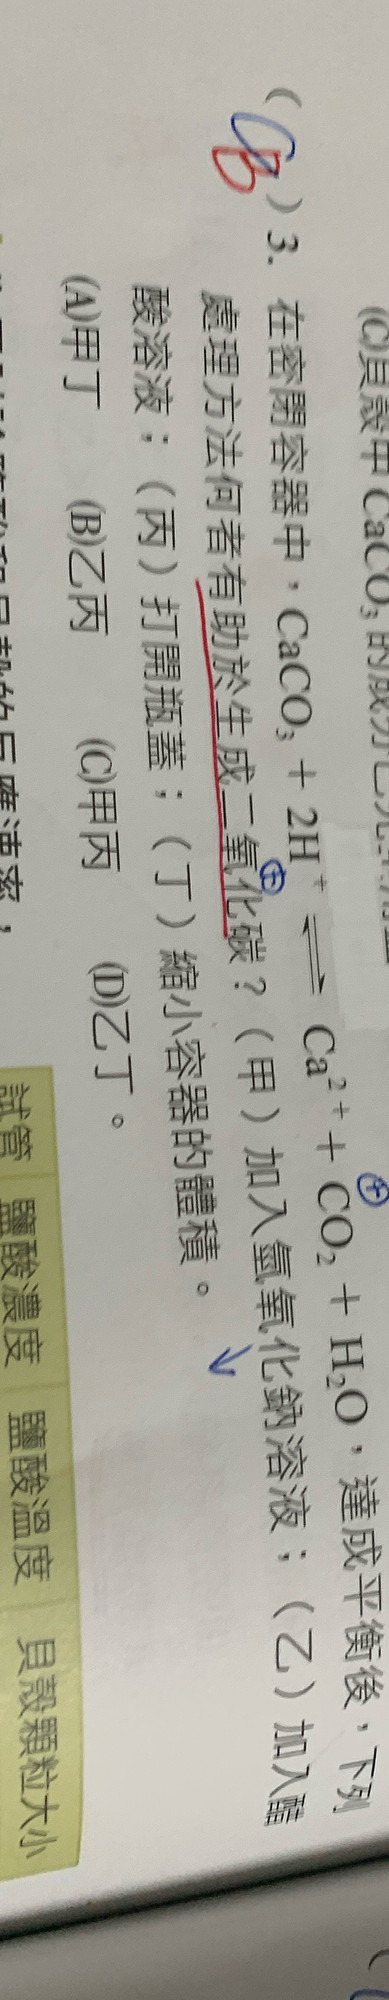 (C)貝殼中CaCO₃的成分已
( B ) 3. 在密閉容器中，CaCO₃ + 2H⁺ ⇌ Ca²⁺ + CO₂ + H₂O，達成平衡後，下列
處理方法何者有助於生成二氧化碳？（甲）加入氫氧化鈉溶液；（乙）加入醋
酸溶液；（丙）打開瓶蓋；（丁）縮小容器的體積。
(A)甲丁 (B)乙丙 (C)甲丙 (D)乙丁。
試管 鹽酸濃度 鹽酸溫度 貝殼顆粒大小